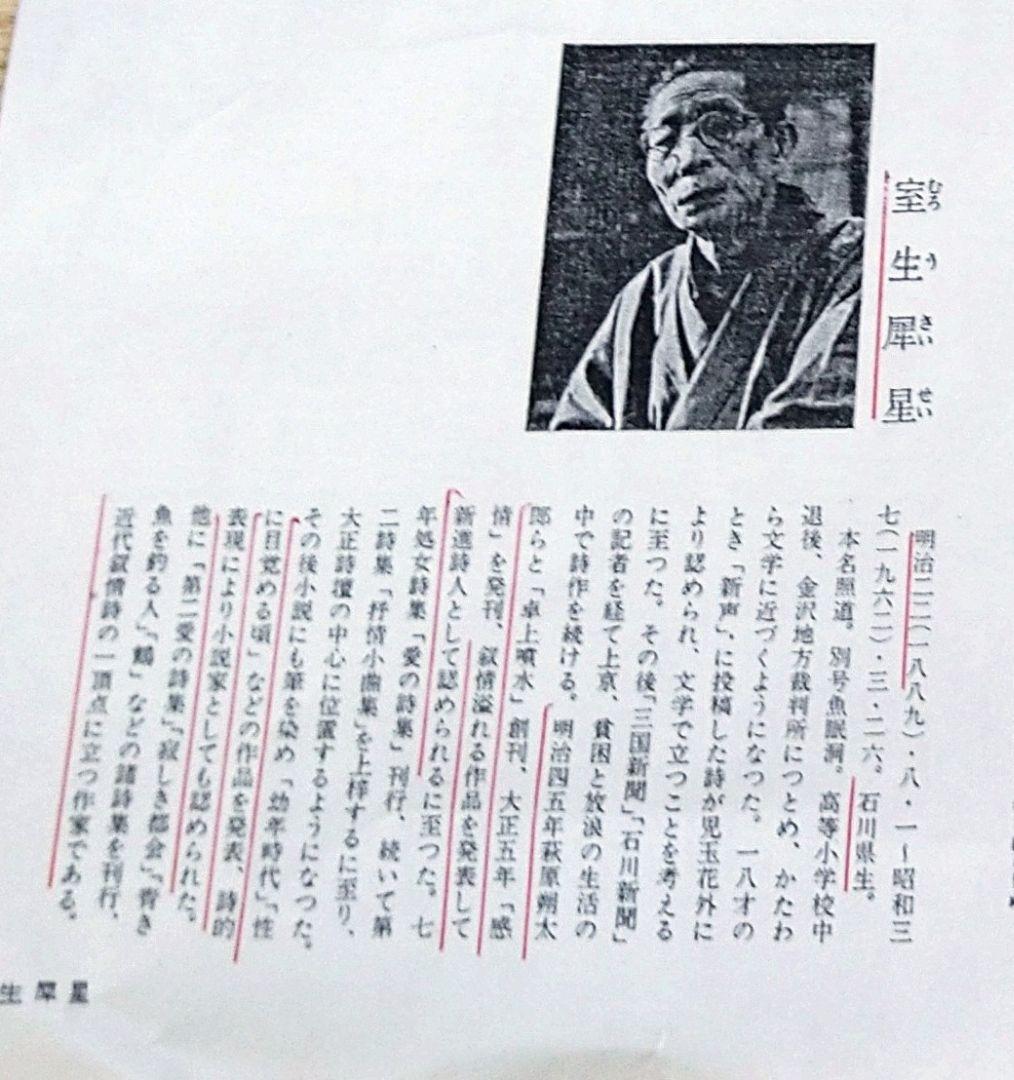 室生犀星
むろうさいせい
明治二二(一八八九)・八・一〜昭和三
七(一九六二)・三・二六。石川県生。
本名照道。別号魚眠洞。高等小学校中
退後、金沢地方裁判所につとめ、かたわ
ら文学に近づくようになつた。一八才の
とき「新声」に投稿した詩が児玉花外に
より認められ、文学で立つことを考える
に至つた。その後「三国新聞」「石川新聞」
の記者を経て上京、貧困と放浪の生活の
中で詩作を続ける。明治四五年萩原朔太
郎らと「卓上噴水」創刊、大正五年「感
情」を発刊、叙情溢れる作品を発表して
新進詩人として認められるに至つた。七
年処女詩集「愛の詩集」刊行、続いて第
二詩集「抒情小曲集」を上梓するに至り、
大正詩壇の中心に位置するようになつた。
その後小説にも筆を染め「幼年時代」「性
に目覚める頃」などの作品を発表、詩的
表現により小説家としても認められた。
他に「第二愛の詩集」「寂しき都会」「青き
魚を釣る人」「鶴」などの諸詩集を刊行、
近代叙情詩の一頂点に立つ作家である。
生犀星